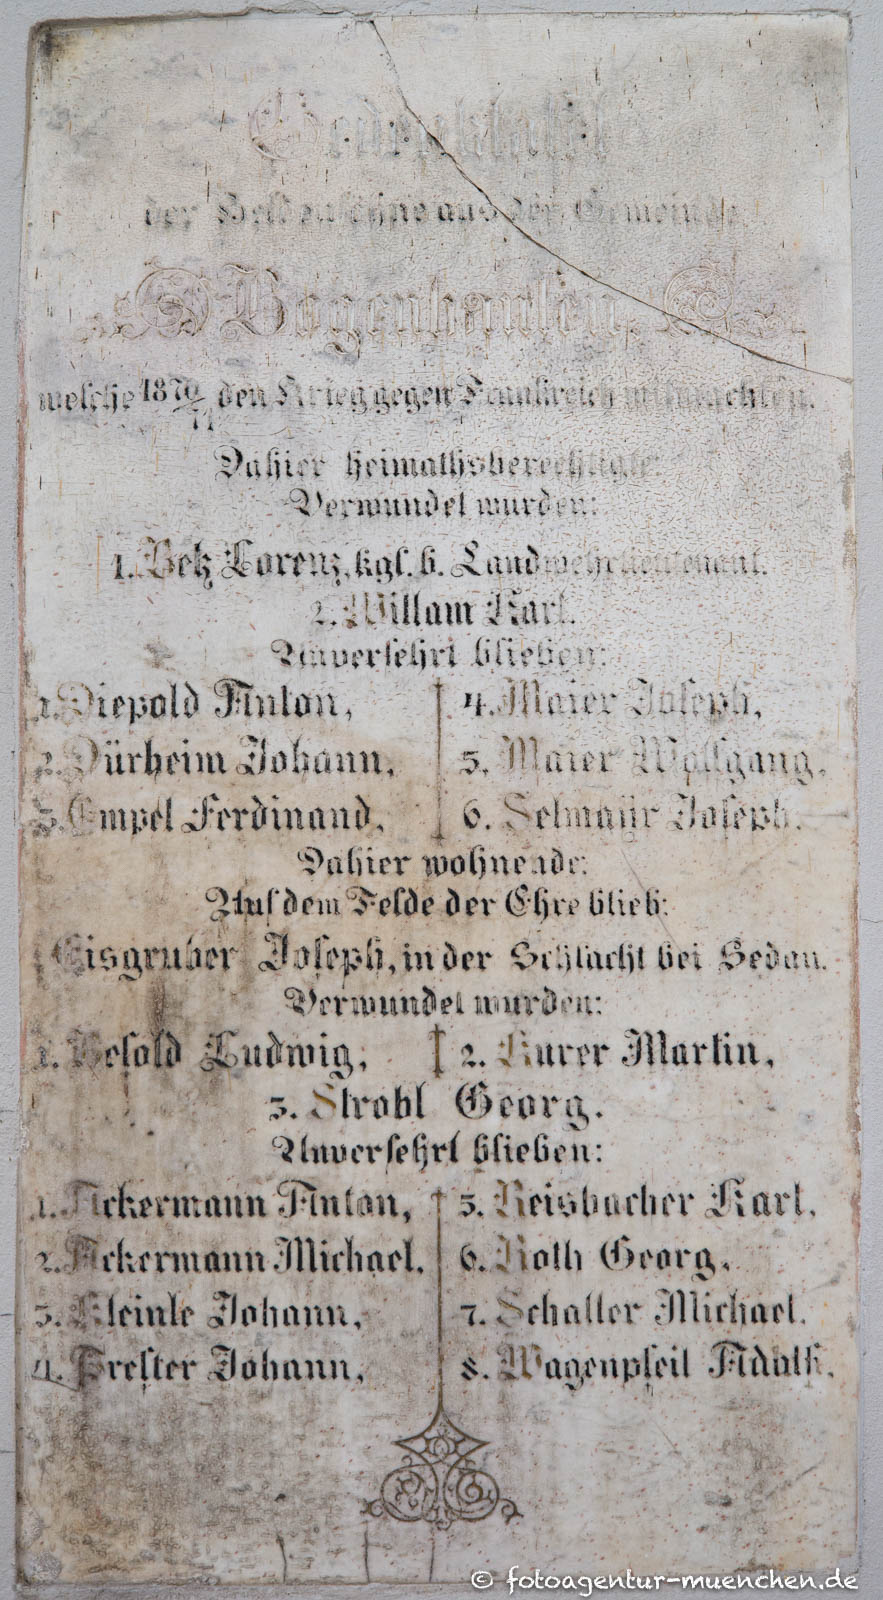 Gedenktafel
der Heldensöhne aus der Gemeinde
Bogenhausen,
welche 1870/71 den Krieg gegen Frankreich mitmachten.
Dahier heimathsberechtigte:
Verwundet wurden:
1. Betz Lorenz, kgl. b. Landwehrlieutenant.
2. Willam Karl.
Unversehrt blieben:
1. Diepold Anton,
2. Dürheim Johann,
3. Empel Ferdinand,
4. Maier Joseph,
5. Maier Wolfgang,
6. Selmaÿr Joseph.
Dahier wohnende:
Auf dem Felde der Ehre blieb:
Eisgruber Joseph, in der Schlacht bei Sedan.
Verwundet wurden:
1. Besold Ludwig, 2. Kurer Martin,
3. Strobl Georg.
Unversehrt blieben:
1. Ackermann Anton,
2. Ackermann Michael,
3. Kleinle Johann,
4. Prester Johann,
5. Reisbacher Karl,
6. Roth Georg,
7. Schaller Michael.
8. Wagenpfeil Adolf.
© fotoagentur-muenchen.de